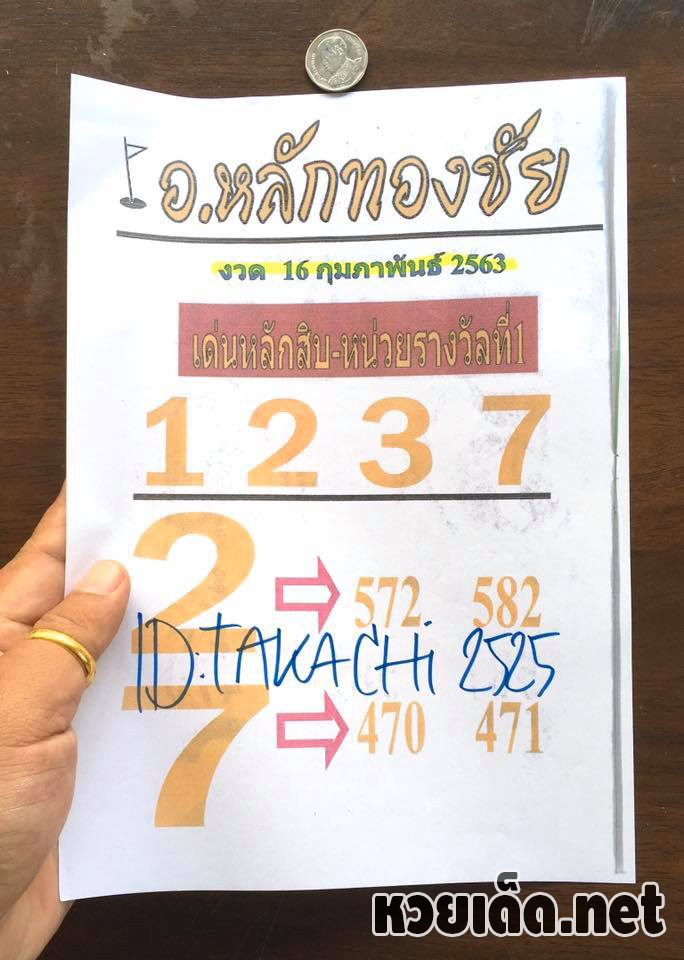 อ.หลักทองชัย
งวด 16 กุมภาพันธ์ 2563
เด่นหลักสิบ-หน่วยรางวัลที่1
1 2 3 7
2
572 582
ID:TAKACHi 2525
7
470 471
หวยเด็ด.net